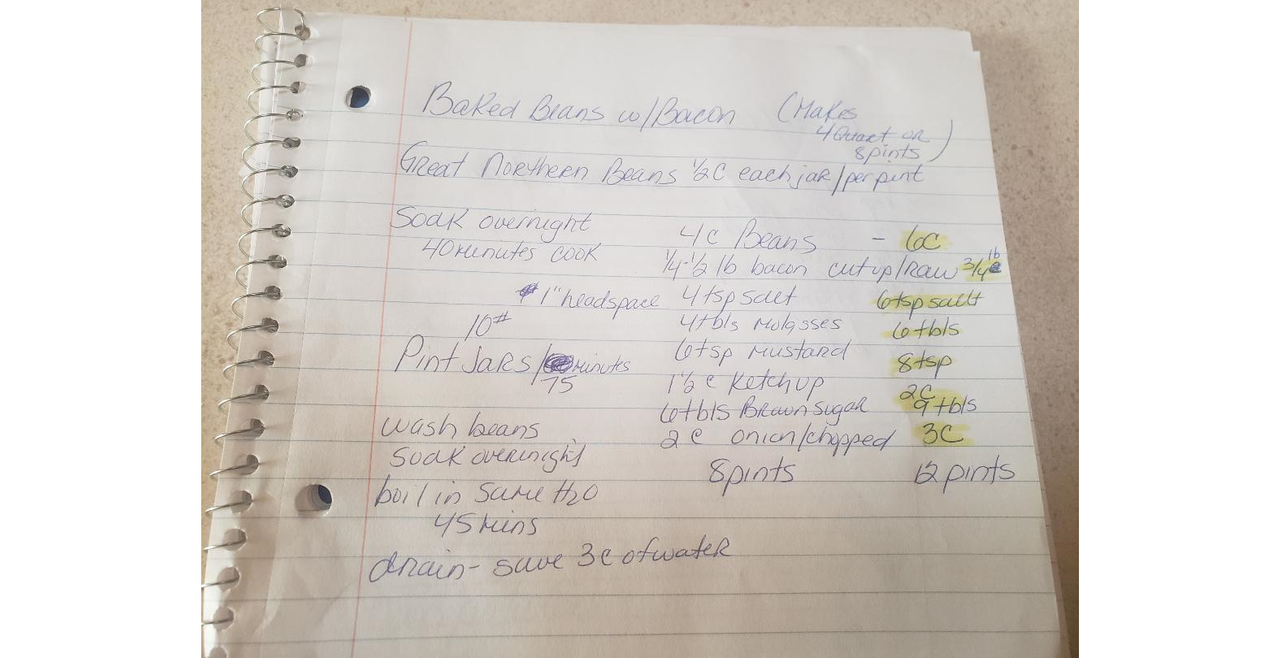 Baked Beans w/Bacon (Makes
4 Quart or
8 pints)
Great Northern Beans 1/2 C each jar/per pint
Soak overnight 4 c Beans - 6C
40 minutes cook 1/4-1/2 lb bacon cut up/raw 3/4 lb
1" headspace 4 tsp salt 6 tsp salt
10# 4 tbls Molasses 6 tbls
Pint Jars/ minutes 6 tsp mustard 8 tsp
75 1 1/2 c Ketchup 2C
6 tbls Brown Sugar 9 tbls
wash beans 2 c onion/chopped 3C
Soak overnight 8 pints 12 pints
boil in Same H2O
45 mins
drain - save 3c of water